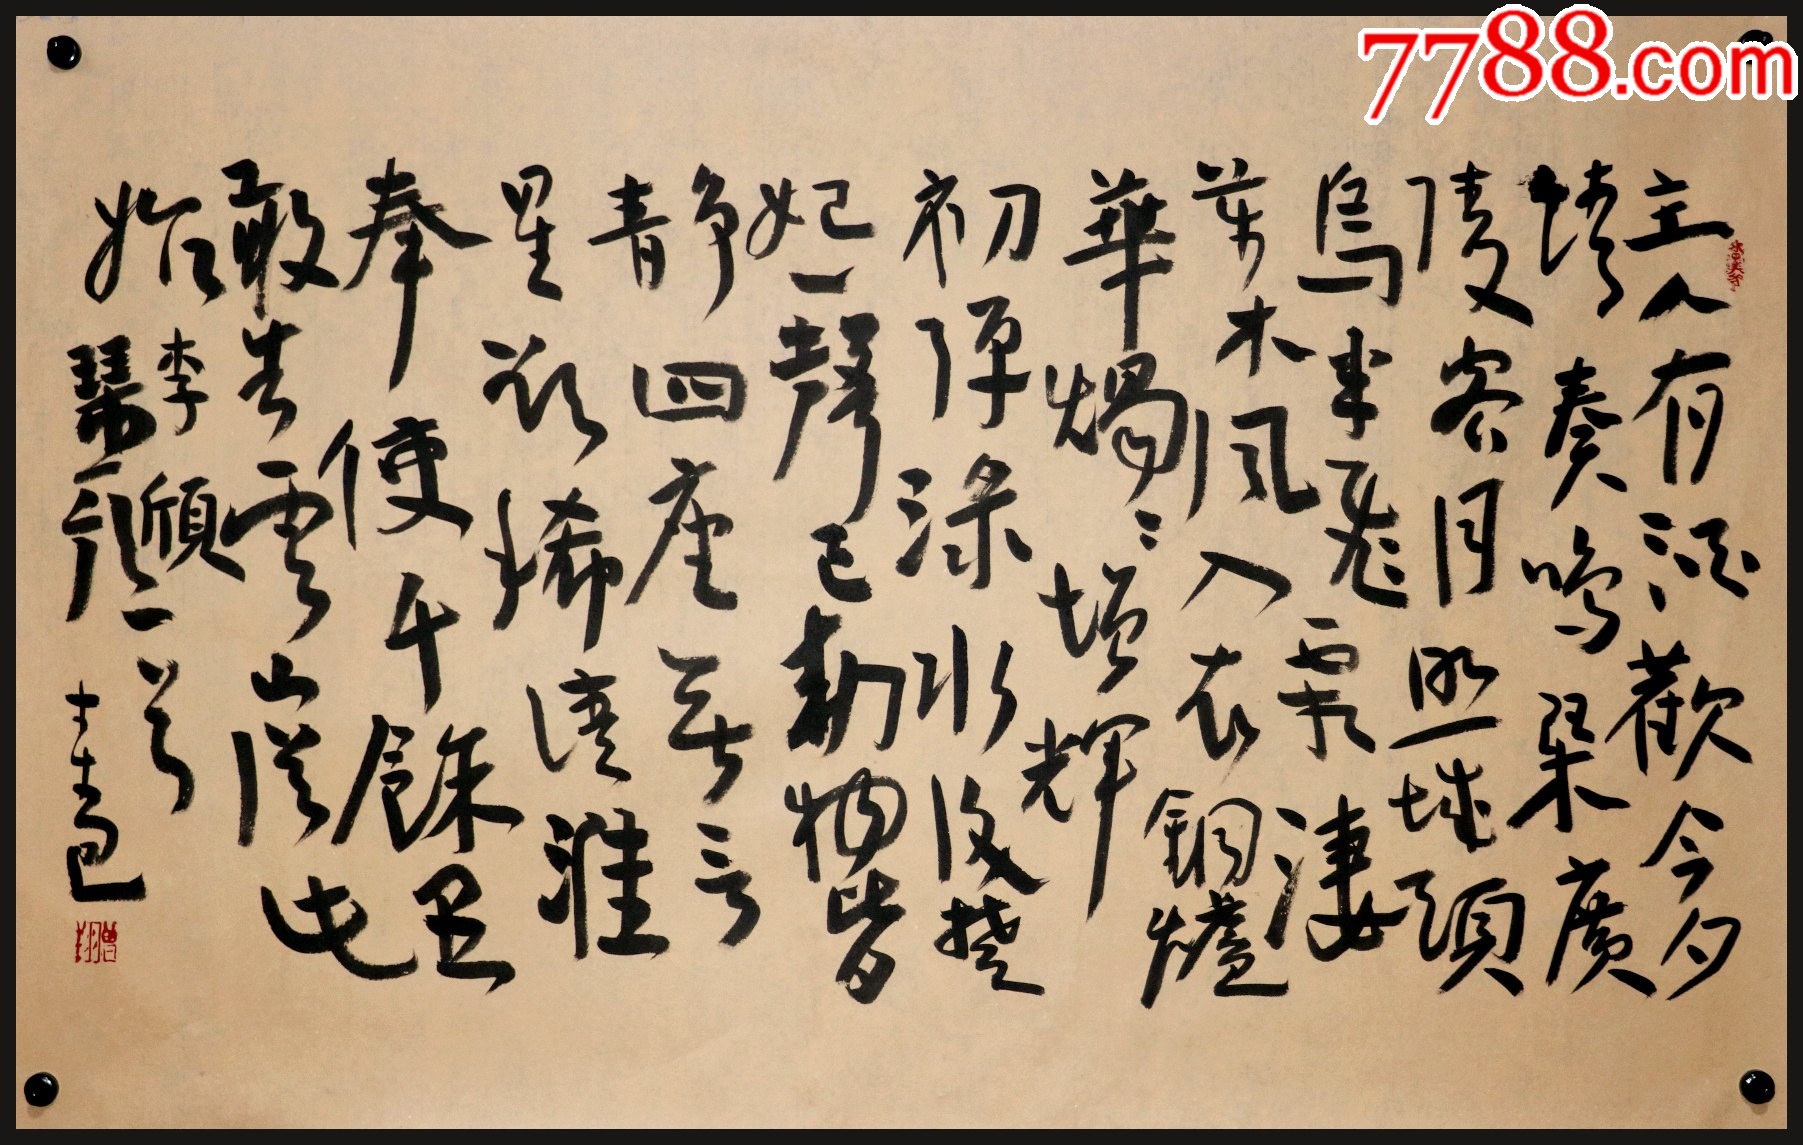 7788.com
主人有酒歡今夕
請奏鳴琴廣
陵客月照城頭
烏半飛霜淒
萬木風入衣銅爐
華燭々增輝
初彈淥水後楚
妃一聲已動物皆
靜四座無言
星欲稀清淮
奉使千餘里
敢告雲山從此
始 李頎
琴歌一首
曾翔